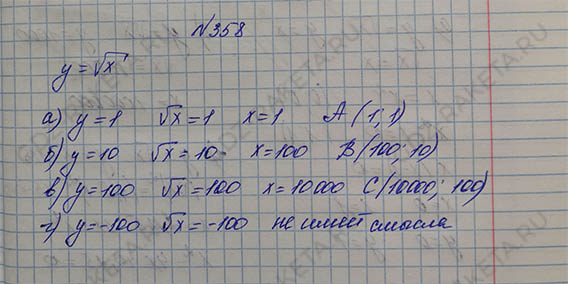 №358
y = √x
а) y = 1 √x = 1 x = 1 A (1; 1)
б) y = 10 √x = 10 x = 100 B (100; 10)
в) y = 100 √x = 100 x = 10000 C (10000; 100)
г) y = -100 √x = -100 не имеет смысла